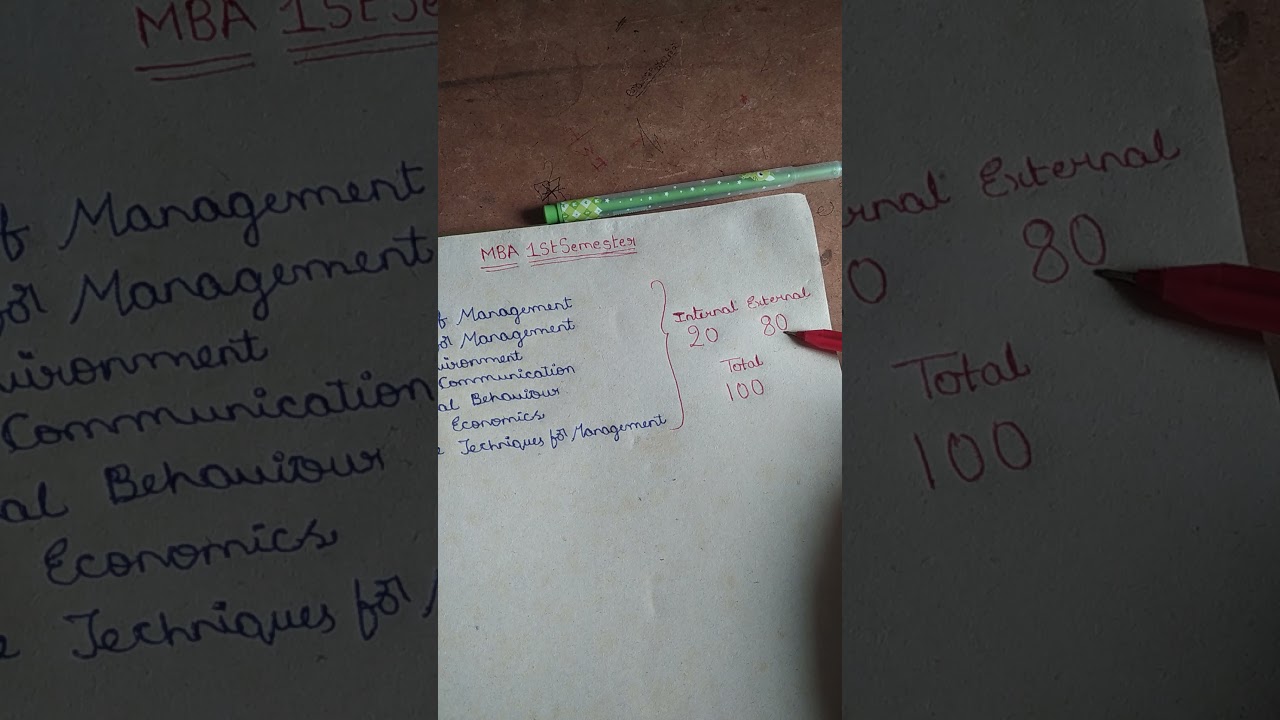 MBA 1st Semester
of Management
for Management
vironment
Communication
al Behaviour
Economics
e Techniques for Management
Internal External
20 80
Total
100